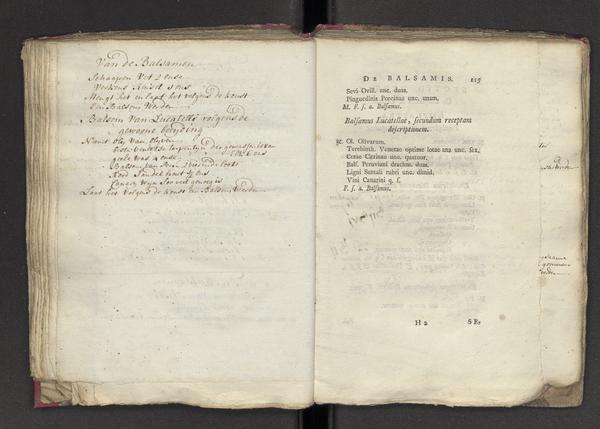 Van de Balsamen
Schaapen Vet 2 onse
Verkens Reusel 1 ons
Mengt het en laat het volgens de konst
Een Balsem Werden
Balsem Van Lucatelli volgens de
gewoone bereyding
Neemt Oly Van Olyven
geele was 4 onse
Balsem van Peru 2 drachmen
Rood Sandel hout ½ ons
Canary wyn Soo veel genoeg is
Laat het volgens de konst een Balsem Werden
DE BALSAMIS. 115
Sevi Ovill. unc. duas.
Pinguedinis Porcinae unc. unam.
M. F. s. a. Balsamus.
Balsamus Lucatellae, secundum receptam
descriptionem.
℞. Ol. Olivarum.
Terebinth. Venetae optime lotae ana unc. sex.
Cerae Citrinae unc. quatuor.
Balf. Peruviani drachm. duas.
Ligni Santali rubri unc. dimid.
Vini Canarini q. s.
F. s. a. Balsamus.
H 2 SE-